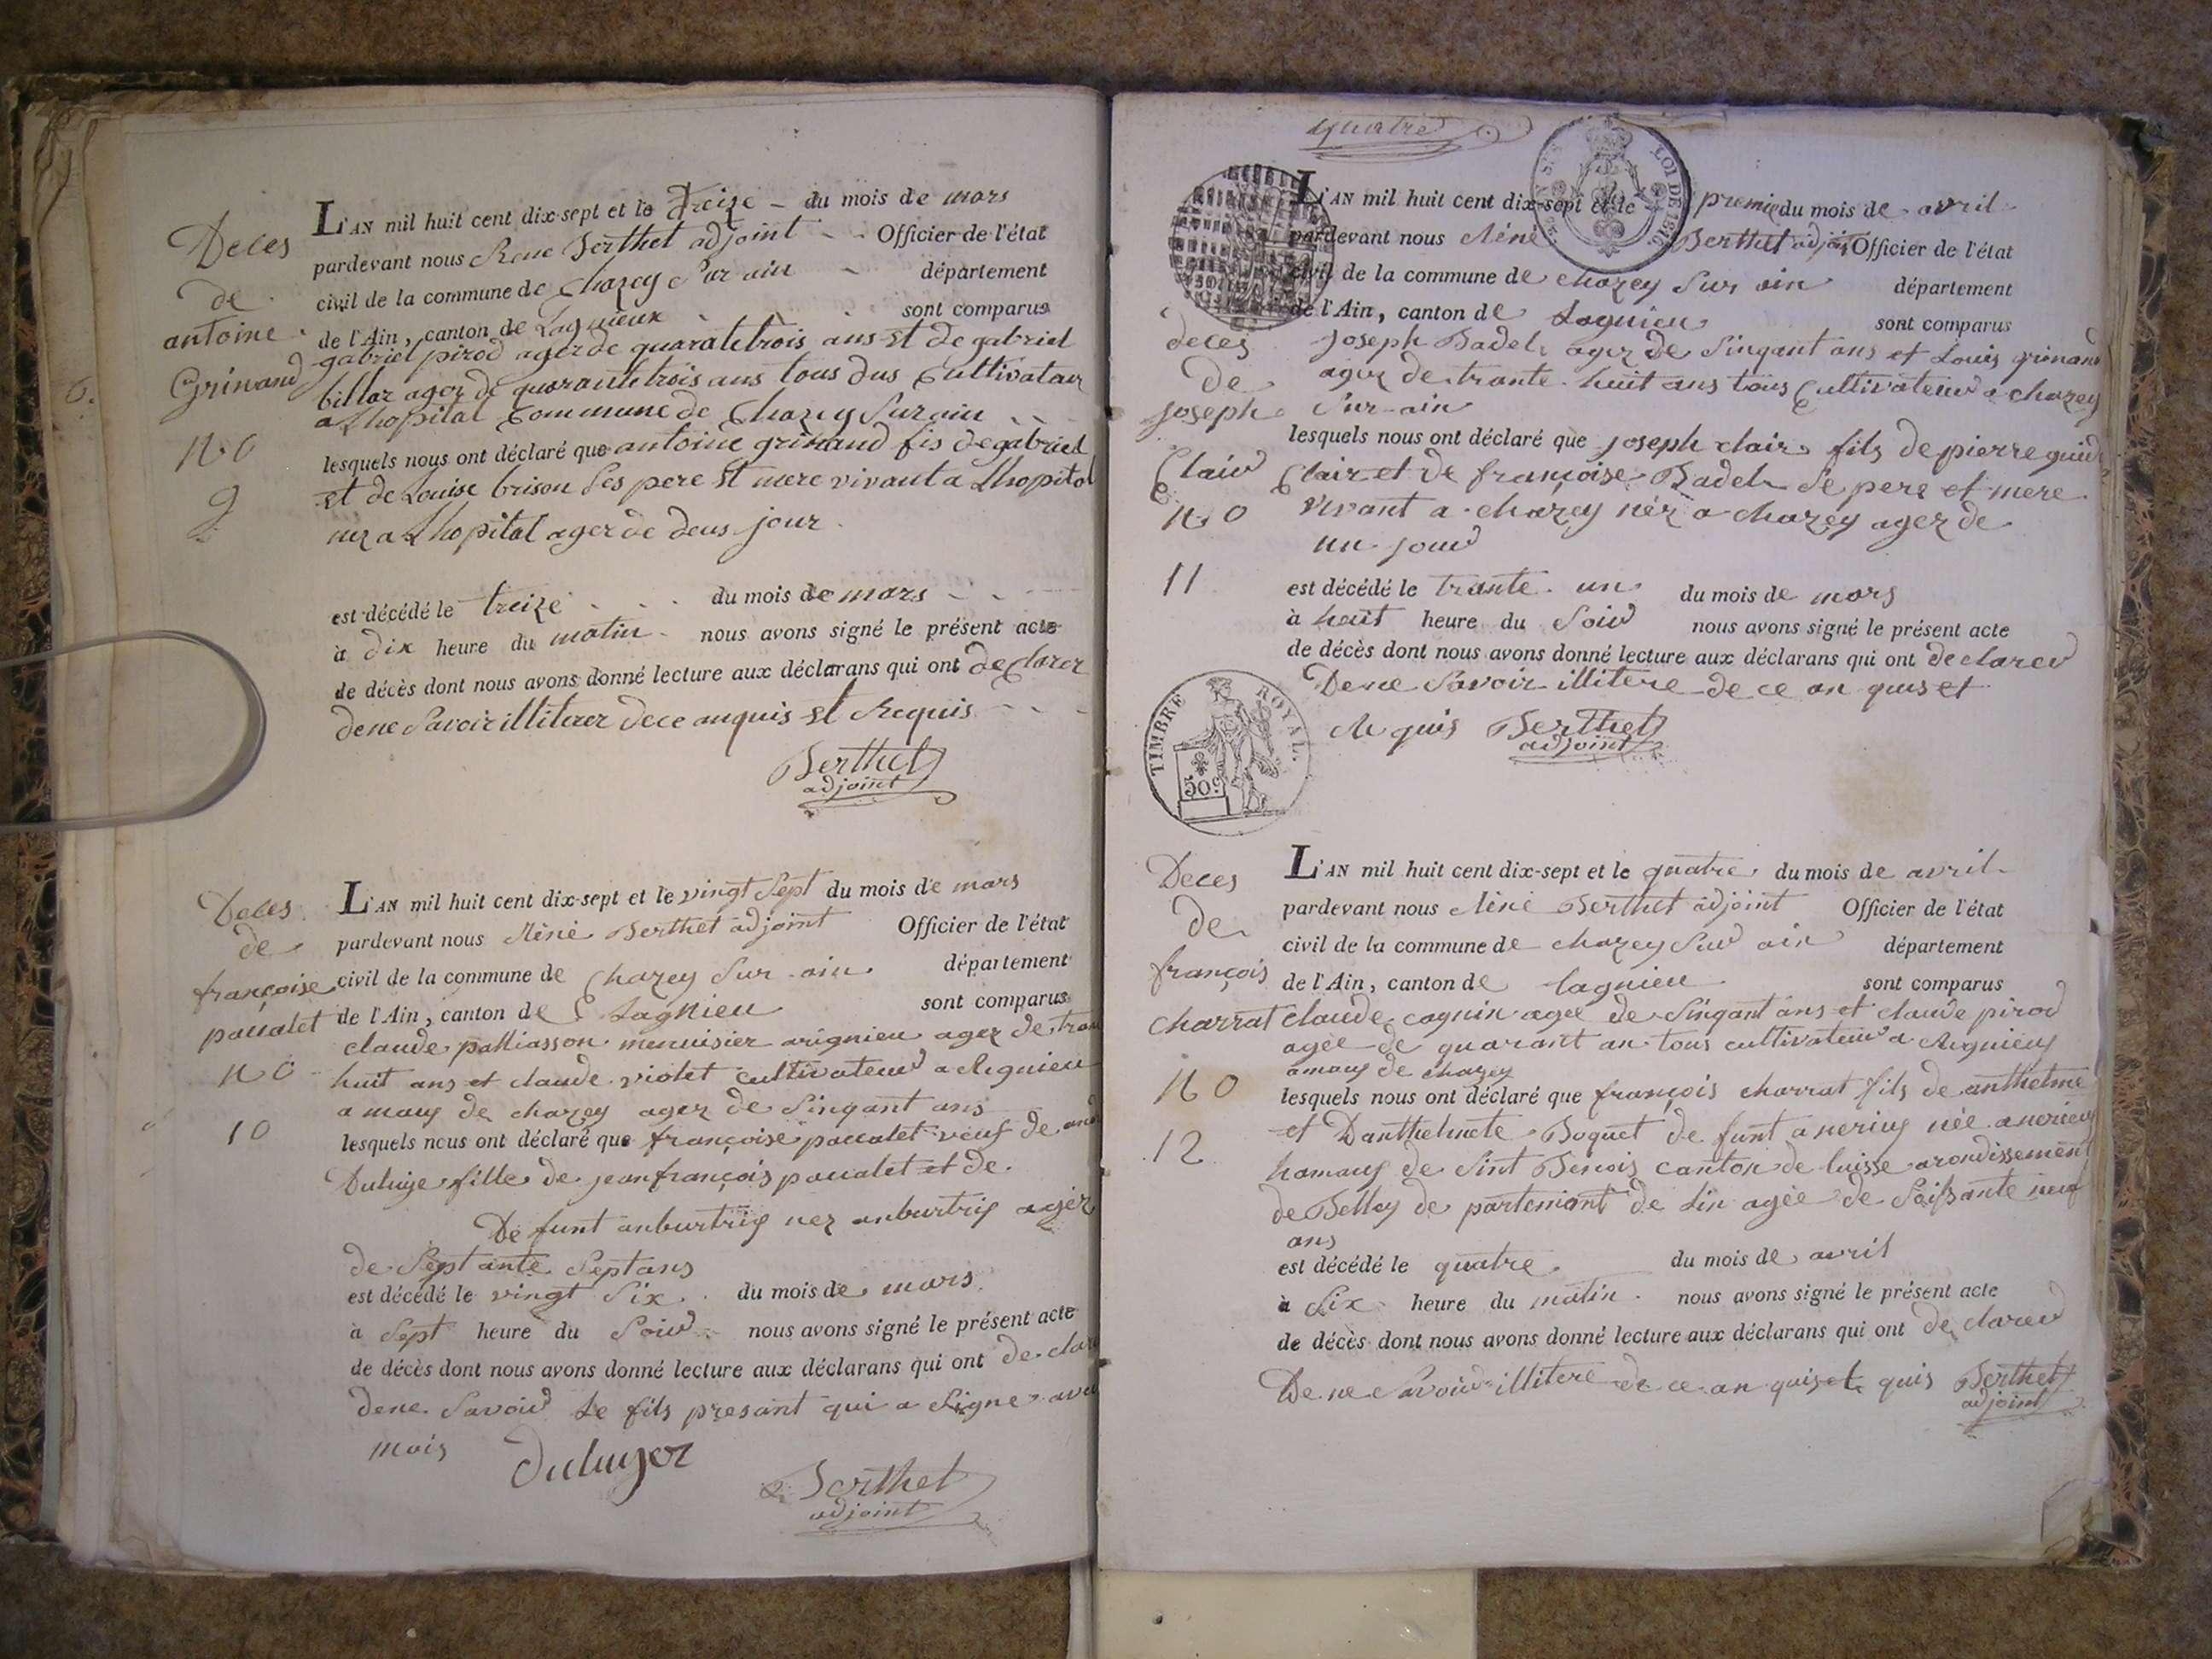 Deces
de
antoine
Grinand
N.o
9
L'AN mil huit cent dix-sept et le Treize du mois de mars
pardevant nous Rene Berthet adjoint Officier de l'état
civil de la commune de Chazey Sur ain département
de l'Ain, canton de Lagnieux sont comparus
gabriel pirod ager de quaratetrois ans et de gabriel
billar ager de quarantetrois ans tous dus Cultivataur
a Lhopital Commune de Chazey Sur ain
lesquels nous ont déclaré que antoine grinand fis de gabriel
et de Louise brison Ses pere et mere vivant a Lhopital
nez a Lhopital ager de deus jour
est décédé le treize du mois de mars
à dix heure du matin nous avons signé le présent acte
de décès dont nous avons donné lecture aux déclarans qui ont declarer
dene Savoir illiterer dece anquis et Requis
Berthet
adjoint
Deces
de
françoise
pacalet
no
10
L'AN mil huit cent dix-sept et le vingt Sept du mois de mars
pardevant nous Réné Berthet adjoint Officier de l'état
civil de la commune de Chazey Sur ain département
de l'Ain, canton de Lagnieu sont comparus
claude palliasson menuisier arignieu ager de
huit ans et claude violet cultivateur a Rignieu
a mauy de chazey ager de Sinqant ans
lesquels nous ont déclaré que françoise pacalet veuf de
Duluije fille de jean françois pacalet et de
De funt anburtrig nez anburtrig agér
de Sept ante Septans
est décédé le vingt Six du mois de mars
à Sept heure du Soir nous avons signé le présent acte
de décès dont nous avons donné lecture aux déclarans qui ont
dene Savoir Le fils presant qui a Signe
mois
Berthet
adjoint
quatre
LOI DE 1816
L'AN mil huit cent dix-sept et le premier du mois de avril
pardevant nous Réné Berthet adjoint Officier de l'état
civil de la commune de chazey Sur ain département
de l'Ain, canton de Lagnieu sont comparus
deces
de
joseph
Clair
n.o
11
joseph Badel ager de Sinqant ans et Louis grinand
ager de trante huit ans tous Cultivateur a chazey
Sur ain
lesquels nous ont déclaré que joseph clair fils de pierre
Clair et de françoise Badel Se pere et mere
vivant a chazey nér a chazey ager de
un jour
est décédé le trante un du mois de mars
à huit heure du Soir nous avons signé le présent acte
de décès dont nous avons donné lecture aux déclarans qui ont declarer
De ne Savoir illitere de ce an quis et
Re quis Berthet
adjoint
TIMBRE ROYAL
50c
Deces
de
françois
charrat
No
12
L'AN mil huit cent dix-sept et le quatre du mois de avril
pardevant nous Réné Berthet adjoint Officier de l'état
civil de la commune de chazey Sur ain département
de l'Ain, canton de lagnieu sont comparus
claude cognin agée de Sinqant ans et claude pirod
agée de quarant an tous cultivateur a Rignieux
amauy de chazey
lesquels nous ont déclaré que françois charrat fils de anthelme
et Danthelmete Boquet de funt née
hamauy de Sint Benois canton de luisse arondissement
de Belley de partemant de Lin agée de Soissante neuf
ans
est décédé le quatre du mois de avril
à Six heure du matin nous avons signé le présent acte
de décès dont nous avons donné lecture aux déclarans qui ont de clarer
De ne Savoir illitere de ce an quis et quis Berthet
adjoint